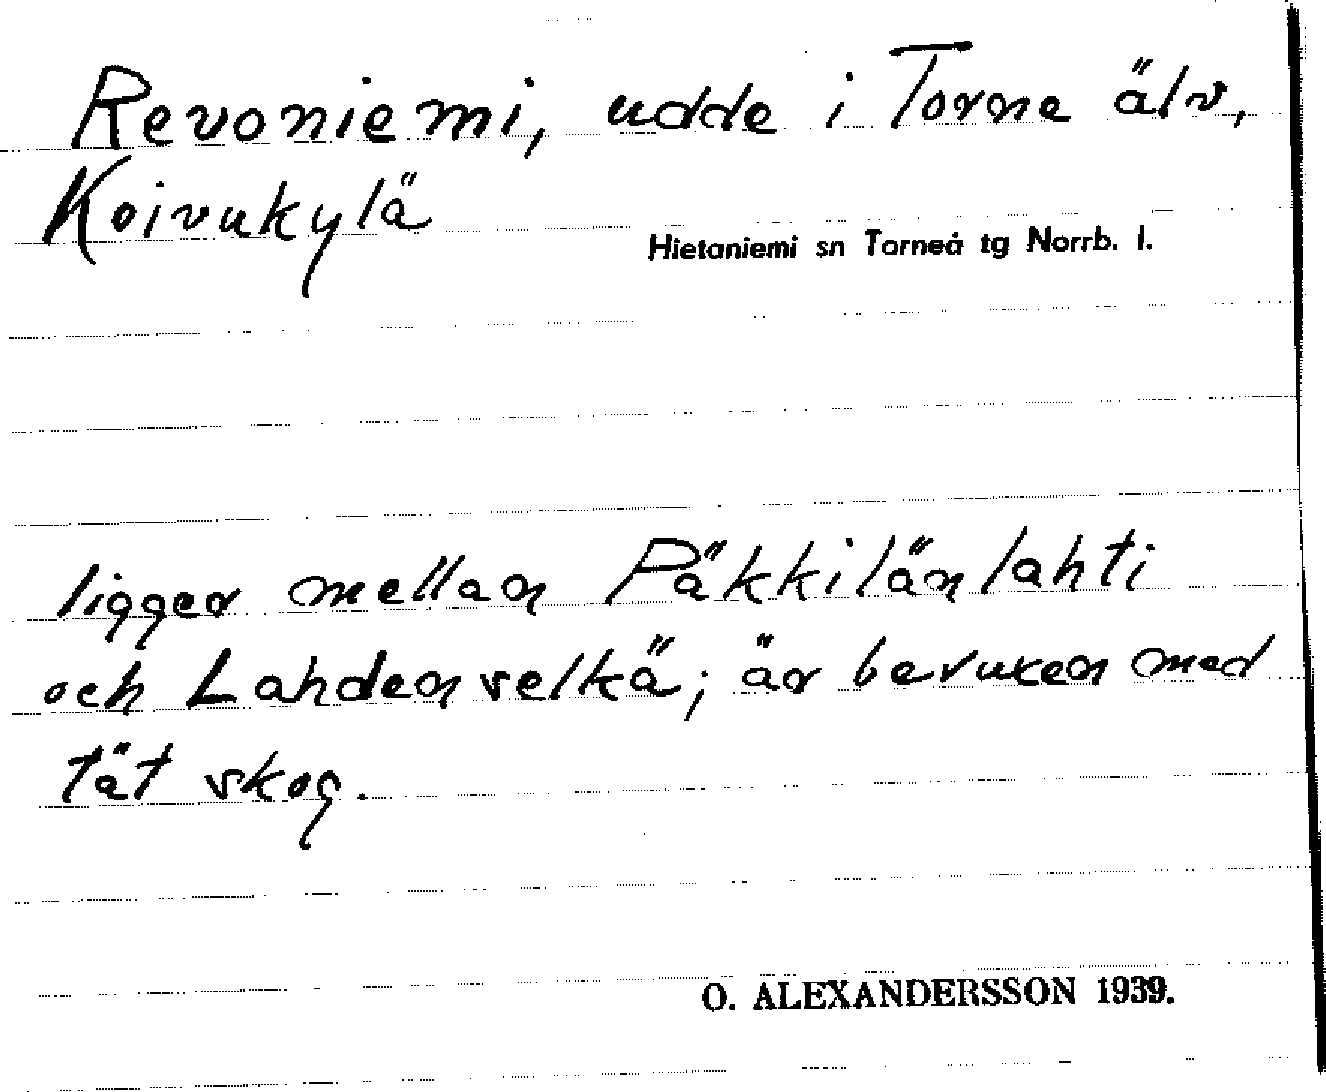 Revoniemi, udde i Torne älv,
Koivukylä
Hietaniemi sn Torneå tg Norrb. l.
ligger mellan Päkkilänlahti
och Lahdenselkä; är bevuxen med
tät skog.
O. ALEXANDERSSON 1939.